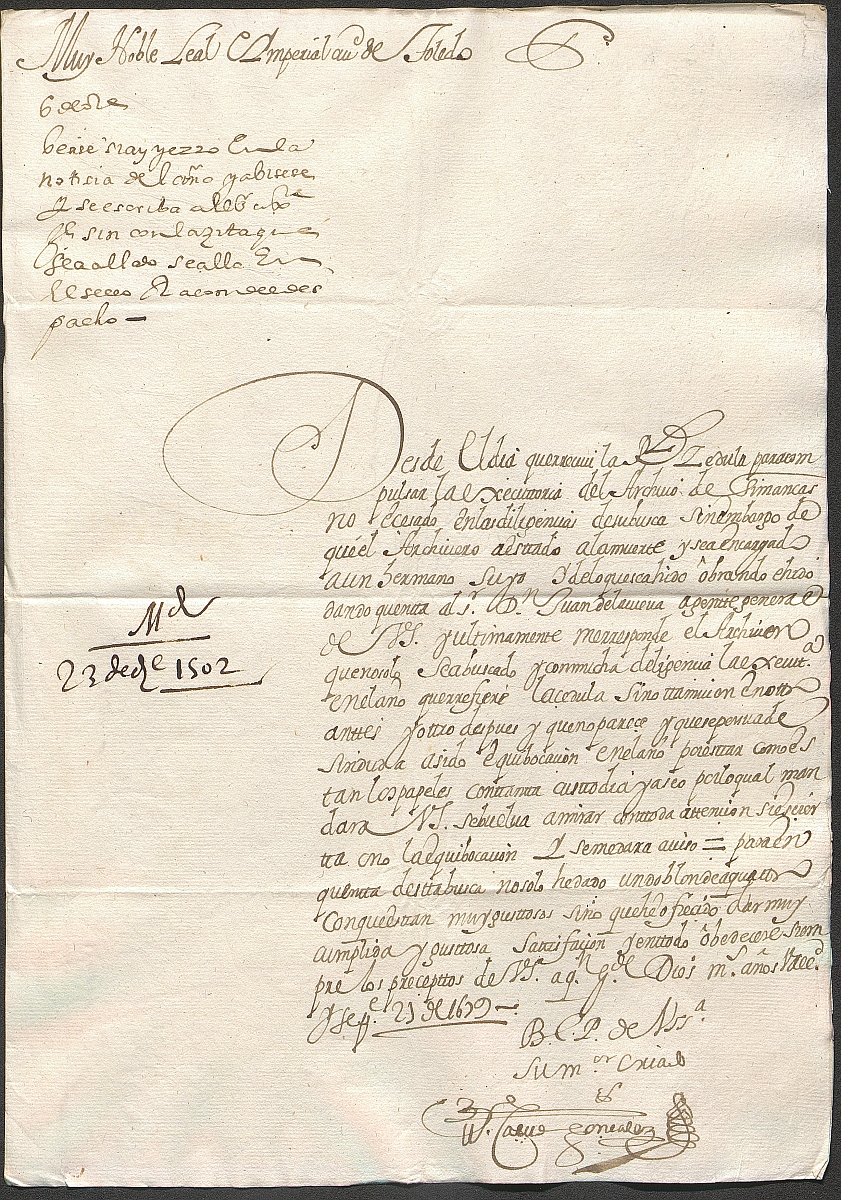 Muy Noble Leal E Imperial ciud de Toledo
6 de
noticia del año y abisese
q se escriba
sin con la zita que
sea allado se alla En
El seco
pacho —
Desde El dia que rrecivi la Rl Zedula para com
pulsar la executtoria del Archivo de Simancas
no e cesado en las dilixencias de su busca sin embargo de
que el Archivero a esttado a la muerte y se a encargado
a un hermano suyo y de lo que sea hido obrando e hido
dando quenta al Sr. Dn Juan de la cueva agente general
de V.S. y ultimamente me rresponde el Archivero
que no solo se a buscado y con mucha delixencia la executa
en el año que rrefiere la cedula sino ttamvien en ottro
anttes y ottro despues y que no parece y que se persuade
sin duda a sido equibocacion en el año por esttar como es
tan los papeles con ttanta custtodia y aseo por lo qual man
dara V.S. se buelva a mirar con ttoda attencion si es cier
tta o no la equibocacion y se me dara aviso = para En
quentta de estta busca no solo he dado un doblon de a quattro
con que esttan muy gusttosos sino que he ofrecido dar muy
cumplida y gusttosa sattisfacion y en ttodo obedecere siem
pre los preceptos de V.S. a qn gde Dios ms. años Vd
y sepe. 21 de 1679 —
Md
23 de 1502
B. L. P. de V. Ssa
Su mor criado
Gonzalez